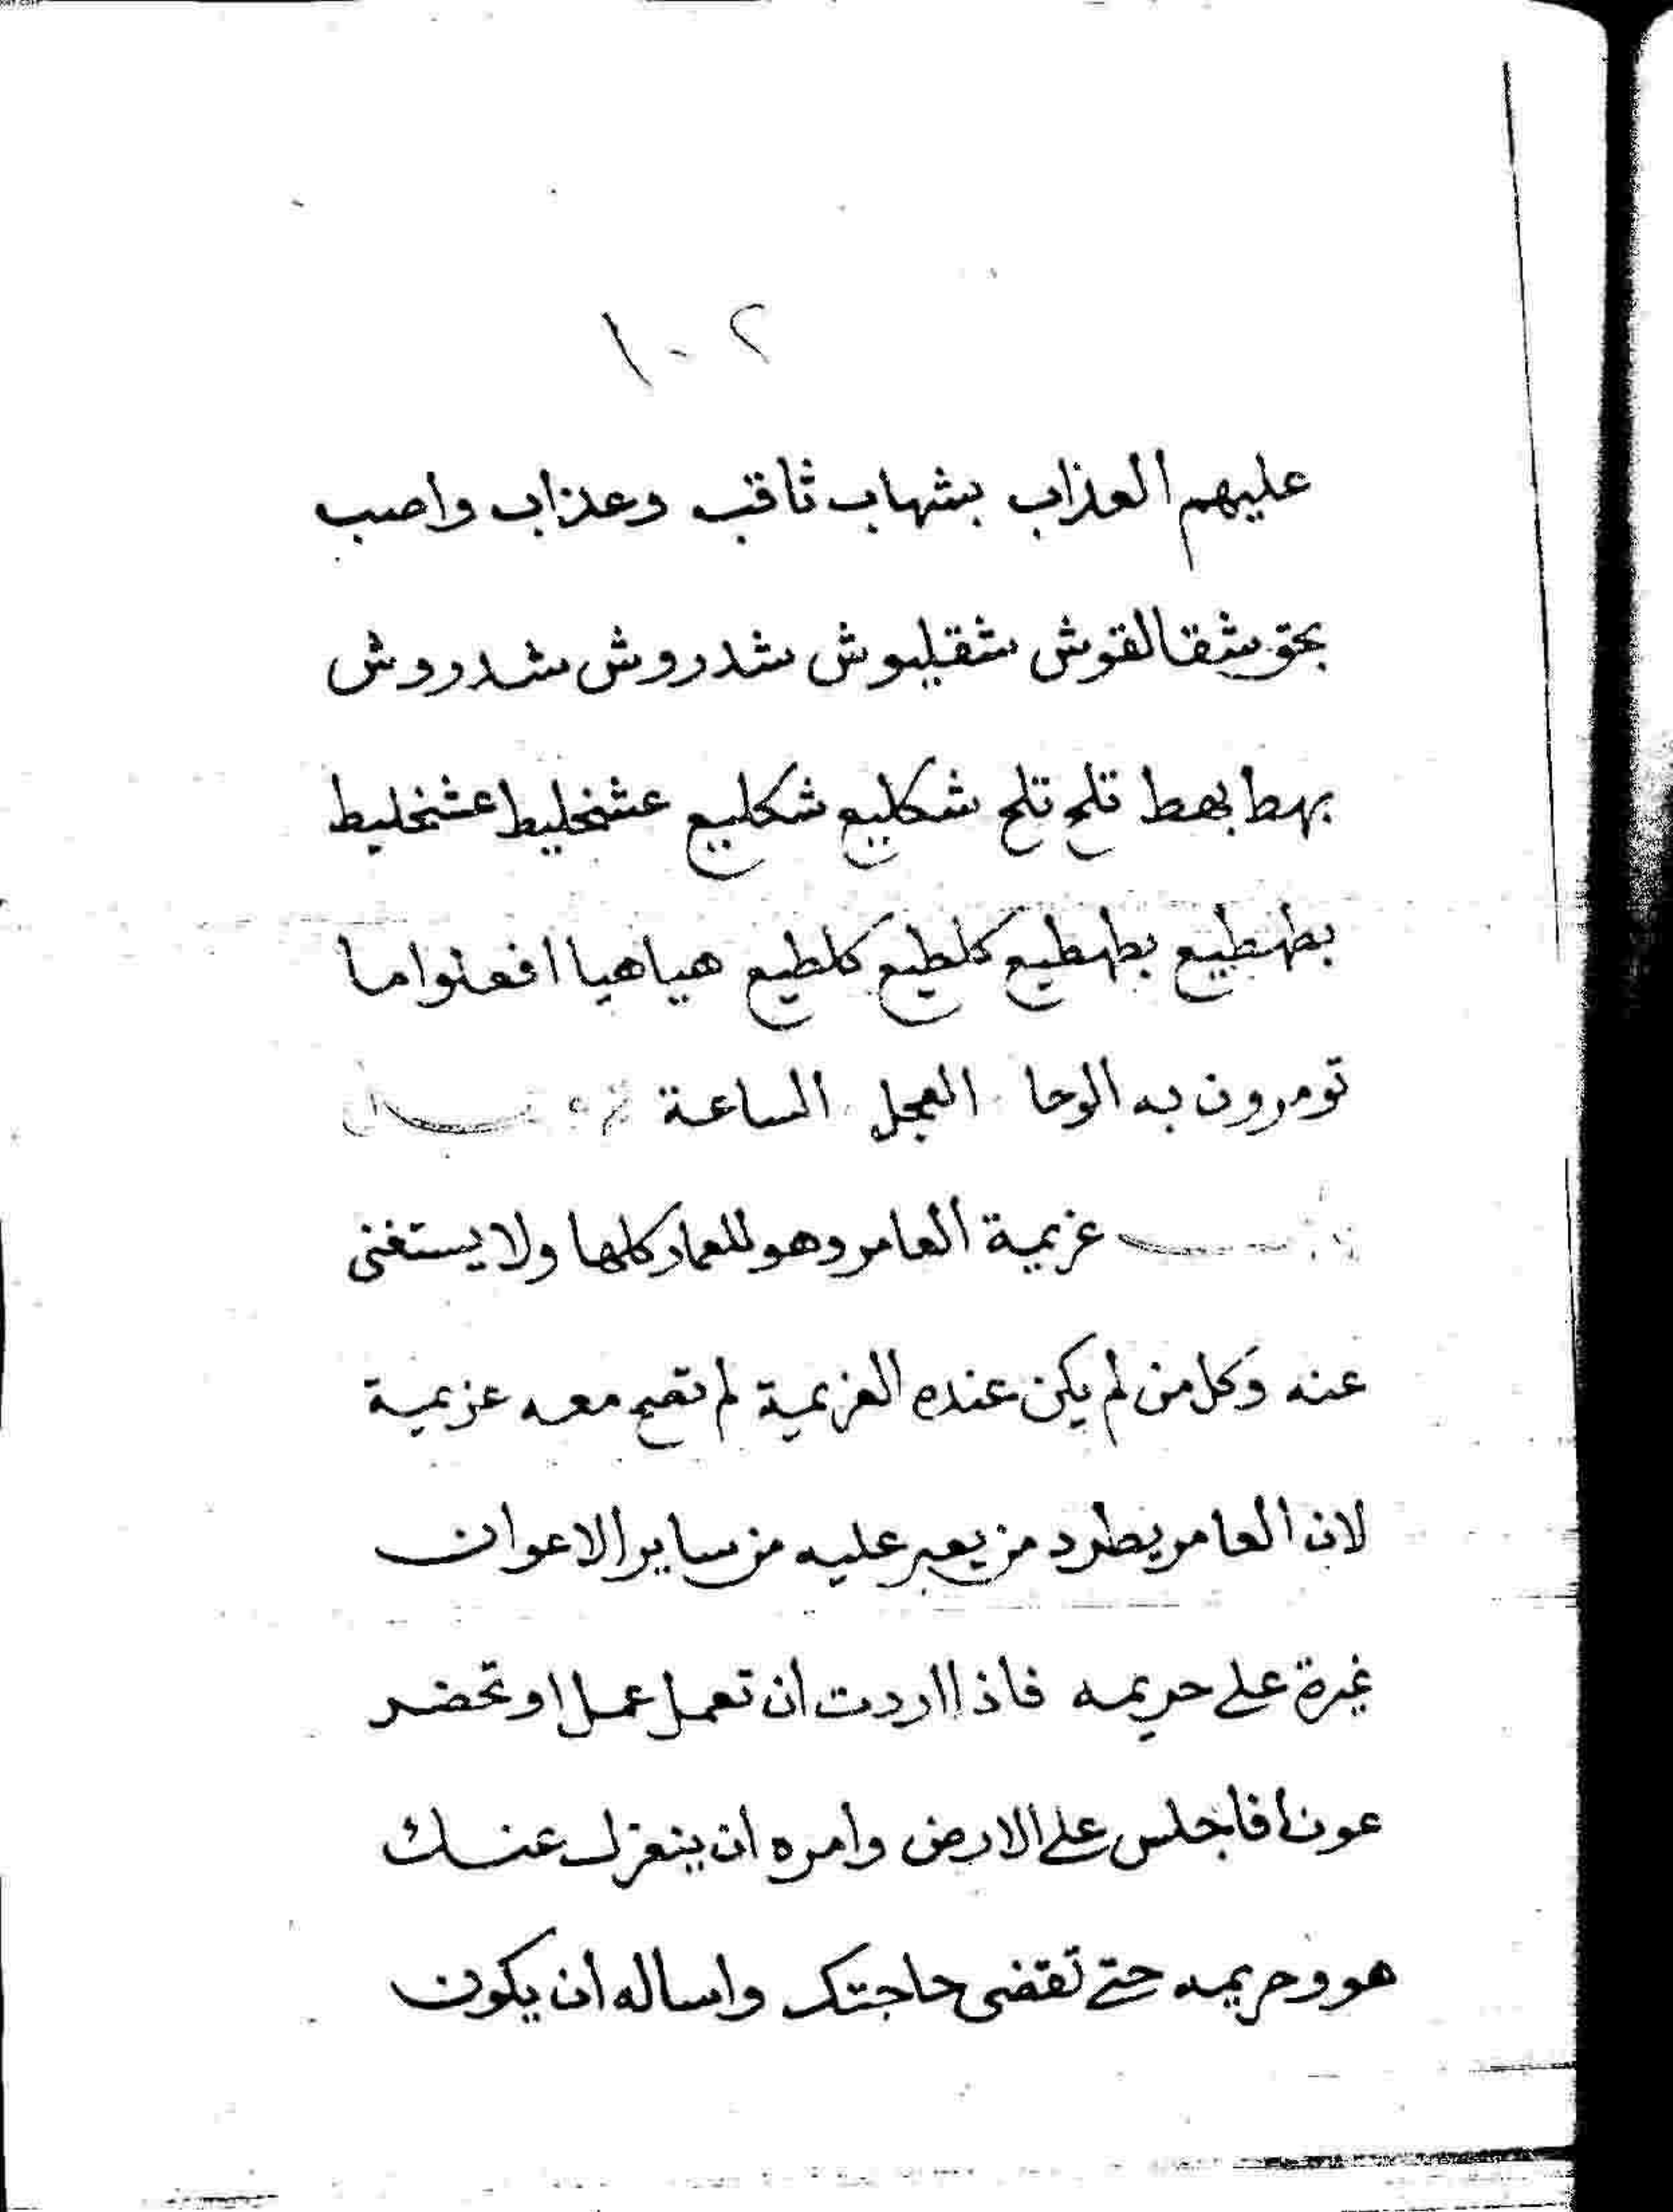 ١٠٢
عليهم العذاب بشهاب ثاقب وعذاب واصب
بحق شقالقوش شقليوش شدروش شدروش
بهط بهط تلح تلح شكليع شكليع عشخليط عشخليط
بطهطيع بطهطيع كلطيع كلطيع هيا هيا افعلوا ما
تومرون به الوحا العجل الساعة
عزيمة العامر وهو للعمار كلها ولا يستغنى
عنه وكل من لم يكن عنده العزيمة لم تصح معه عزيمة
لان العامر يطرد من يعبر عليه من ساير الاعوان
غيرة على حريمه فاذا اردت ان تعمل عمل او تحضر
عونا فاجلس على الارض وامره ان ينعزل عنك
هو وحريمه حتى تقضى حاجتك واساله ان يكون